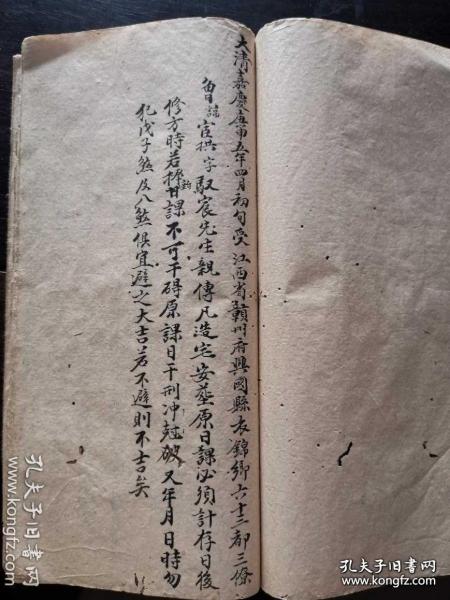 大清嘉慶庚申五年四月初旬受江西省贛州府興國縣衣錦鄉六十二都三僚
曾諱宦拱字馭宸先生親傳凡造宅安塟原日課必須計存日後
修方時若擇日課不可干碍原課日干刑冲尅破又年月日時勿
犯戊子煞及八煞俱宜避之大吉若不避則不吉矣
孔夫子旧书网
www.kongfz.com
孔夫子旧书网
www.kongfz.com